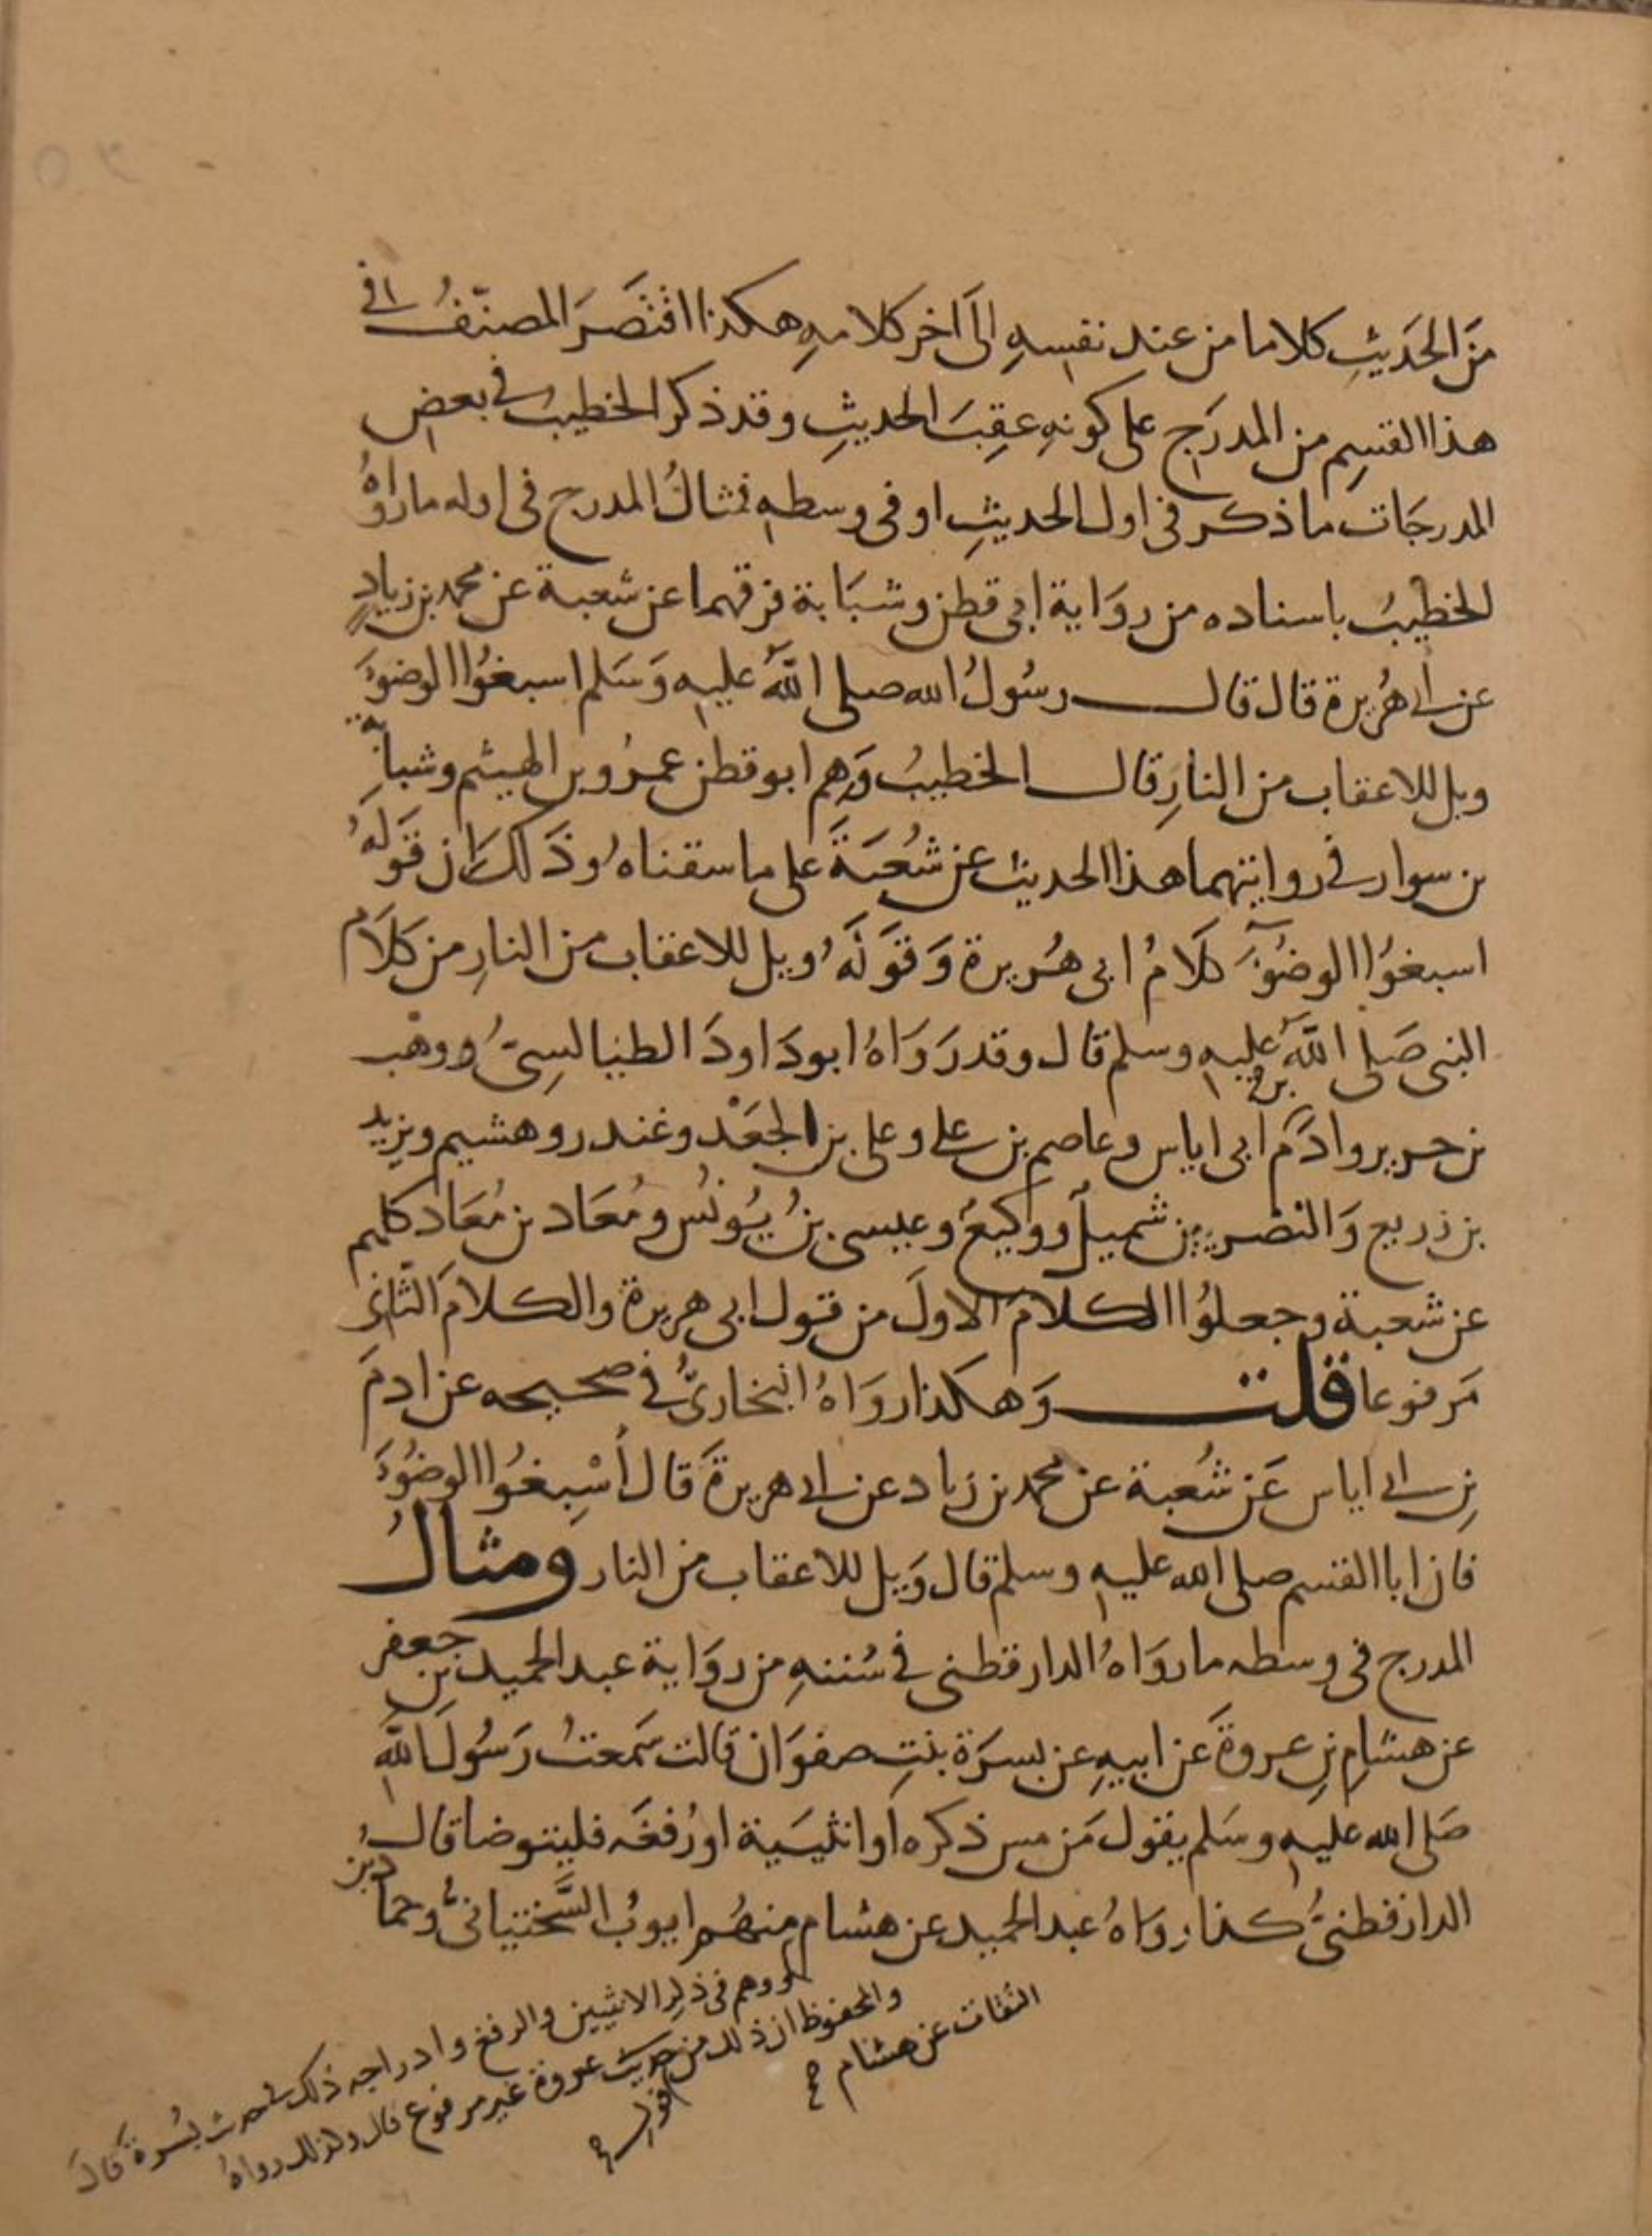 مَن الحَديثِ كلاما من عند نفسهِ الَى اخر كلامهِ هكذا اقتَصَرَ المصنّفُ في
هذا القسِم من المدرَج على كونهِ عقِبَ الحديثِ وقد ذكر الخطيبُ في بعض
المدرجَات ما ذكر في اول الحديثِ او في وسطهِ فمثالُ المدرج في اوله ما رواهُ
الخطيبُ باسناده من روَاية ابي قطن وشبَابة فرقهما عن شعبة عن محمد بن زيادٍ
عن ابي هُريرة قال قال رسُولُ الله صلى اللهُ عليه وَسَلم اسبغُوا الوضوءَ
ويل للاعقاب من النارِ قال الخطيبُ وَهم ابو قطن عمرُو بن الهيثم وشبابة
بن سوار في روايتهما هذا الحديث عن شُعبَةَ على ما سقناهُ وذَلك ان قَولَهُ
اسبغُوا الوضُوءَ كلَامُ ابي هُريرة وَقَولَهُ ويل للاعقاب من النارِ من كلَام
النبي صَلى اللهُ عليه وسلم قال وقد رَوَاهُ ابو دَاودَ الطيالسِىُّ ووهب
بن جرير وادَم بن ابي اياس وعاصم بن على وعلى بن الجعَدْ وغندر وهشيم ويزيد
بن زريع وَالنضر بن شميل ووكيعُ وعيسى بنُ يُونُس ومُعَاد بن مُعَاد كلهم
عن شعبة وجعلُوا الكلامَ الاولَ من قول ابي هريرة والكلامَ الثاني
مَرفوعا قلت وَهكذا روَاهُ البخارىُّ في صحيحه عن ادمَ
بنِ ابي اياس عَن شُعبة عن محمد بن زياد عن ابي هريرةَ قَال أسْبِغُوا الوضُوءَ
فان ابا القسم صلى الله عليه وسلم قال وَيل للاعقاب من النار ومثالُ
المدرج في وسطه ما روَاهُ الدارقطني في سُننهِ من روَاية عبد الحميد بن جعفر
عن هشامِ بنِ عروةَ عَن ابيهِ عن بسرَة بنتِ صفوَان قالت سَمعتُ رَسُولَ اللهِ
صَلى الله عليه وسَلم يقول مَن مس ذكره اَو انثيَيه او رُفغَه فليتوضا قال
الدارقطنىُّ كذا روَاهُ عبد الحميد عن هشام منهُم ايوبُ السَّختيانىُّ وحمادُ بن
ووهم في ذكر الانثيين والرفغ وادراجه ذلك في حديث بُسرةَ قالَ
والمحفوظ ان ذلك من حديث عروة غير مرفوع قال وكذلك رواهُ
الثقات عن هشام صح